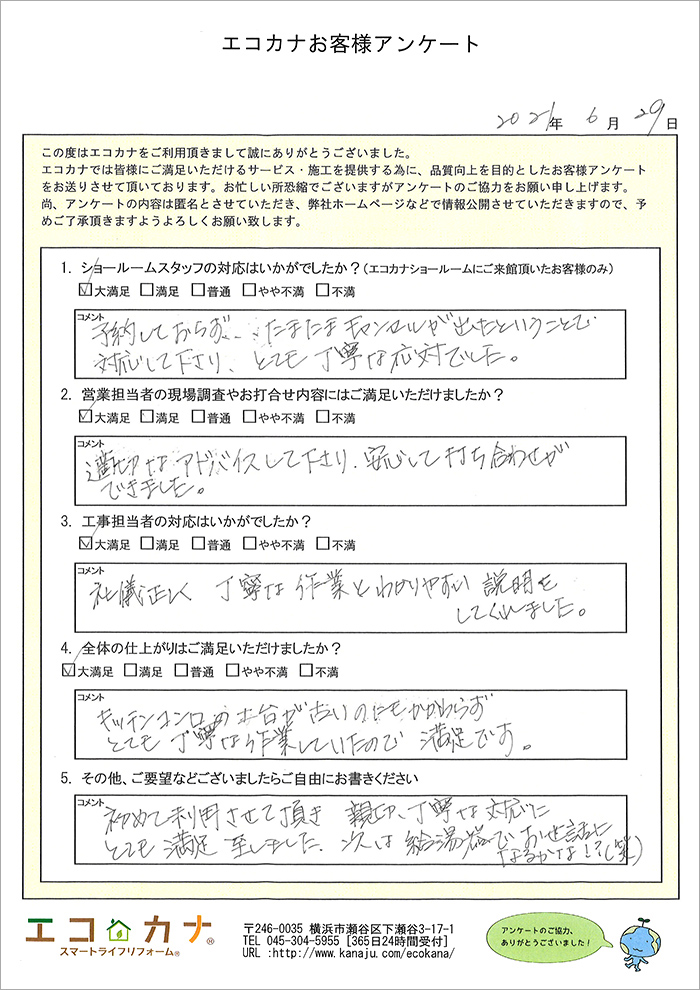 エコカナお客様アンケート
2021年 6月 29日
この度はエコカナをご利用頂きまして誠にありがとうございました。
エコカナでは皆様にご満足いただけるサービス・施工を提供する為に、品質向上を目的としたお客様アンケート
をお送りさせて頂いております。お忙しい所恐縮でございますがアンケートのご協力をお願い申し上げます。
尚、アンケートの内容は匿名とさせていただき、弊社ホームページなどで情報公開させていただきますので、予
めご了承頂きますようよろしくお願い致します。
1. ショールームスタッフの対応はいかがでしたか？(エコカナショールームにご来館頂いたお客様のみ)
☑大満足 □満足 □普通 □やや不満 □不満
コメント
予約しておらず、、たまたまキャンセルが出たということで
対応して下さり、とても丁寧な応対でした。
2. 営業担当者の現場調査やお打合せ内容にはご満足いただけましたか？
☑大満足 □満足 □普通 □やや不満 □不満
コメント
適切なアドバイスして下さり、安心して打ち合わせが
できました。
3. 工事担当者の対応はいかがでしたか？
☑大満足 □満足 □普通 □やや不満 □不満
コメント
礼儀正しく 丁寧な作業とわかりやすい説明を
してくれました。
4. 全体の仕上がりはご満足いただけましたか？
☑大満足 □満足 □普通 □やや不満 □不満
コメント
キッチンコンロの土台が古いのにもかかわらず
とても丁寧な作業していたので 満足です。
5. その他、ご要望などございましたらご自由にお書きください
コメント
初めて利用させて頂き 親切、丁寧な対応に
とても満足至しました、次は給湯器でお世話に
なるかな!?(笑)
エコカナ
スマートライフリフォーム®
〒246-0035 横浜市瀬谷区下瀬谷3-17-1
TEL 045-304-5955 [365日24時間受付]
URL :http://www.kanaju.com/ecokana/
アンケートのご協力、
ありがとうございました！